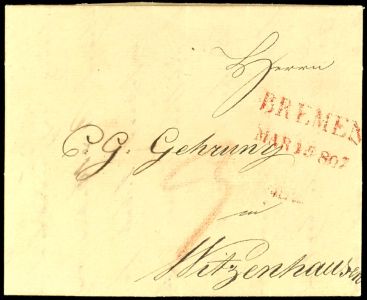 Herrn
BREMEN
MAR 15 807
C. G. Gehrung
in
Witzenhausen